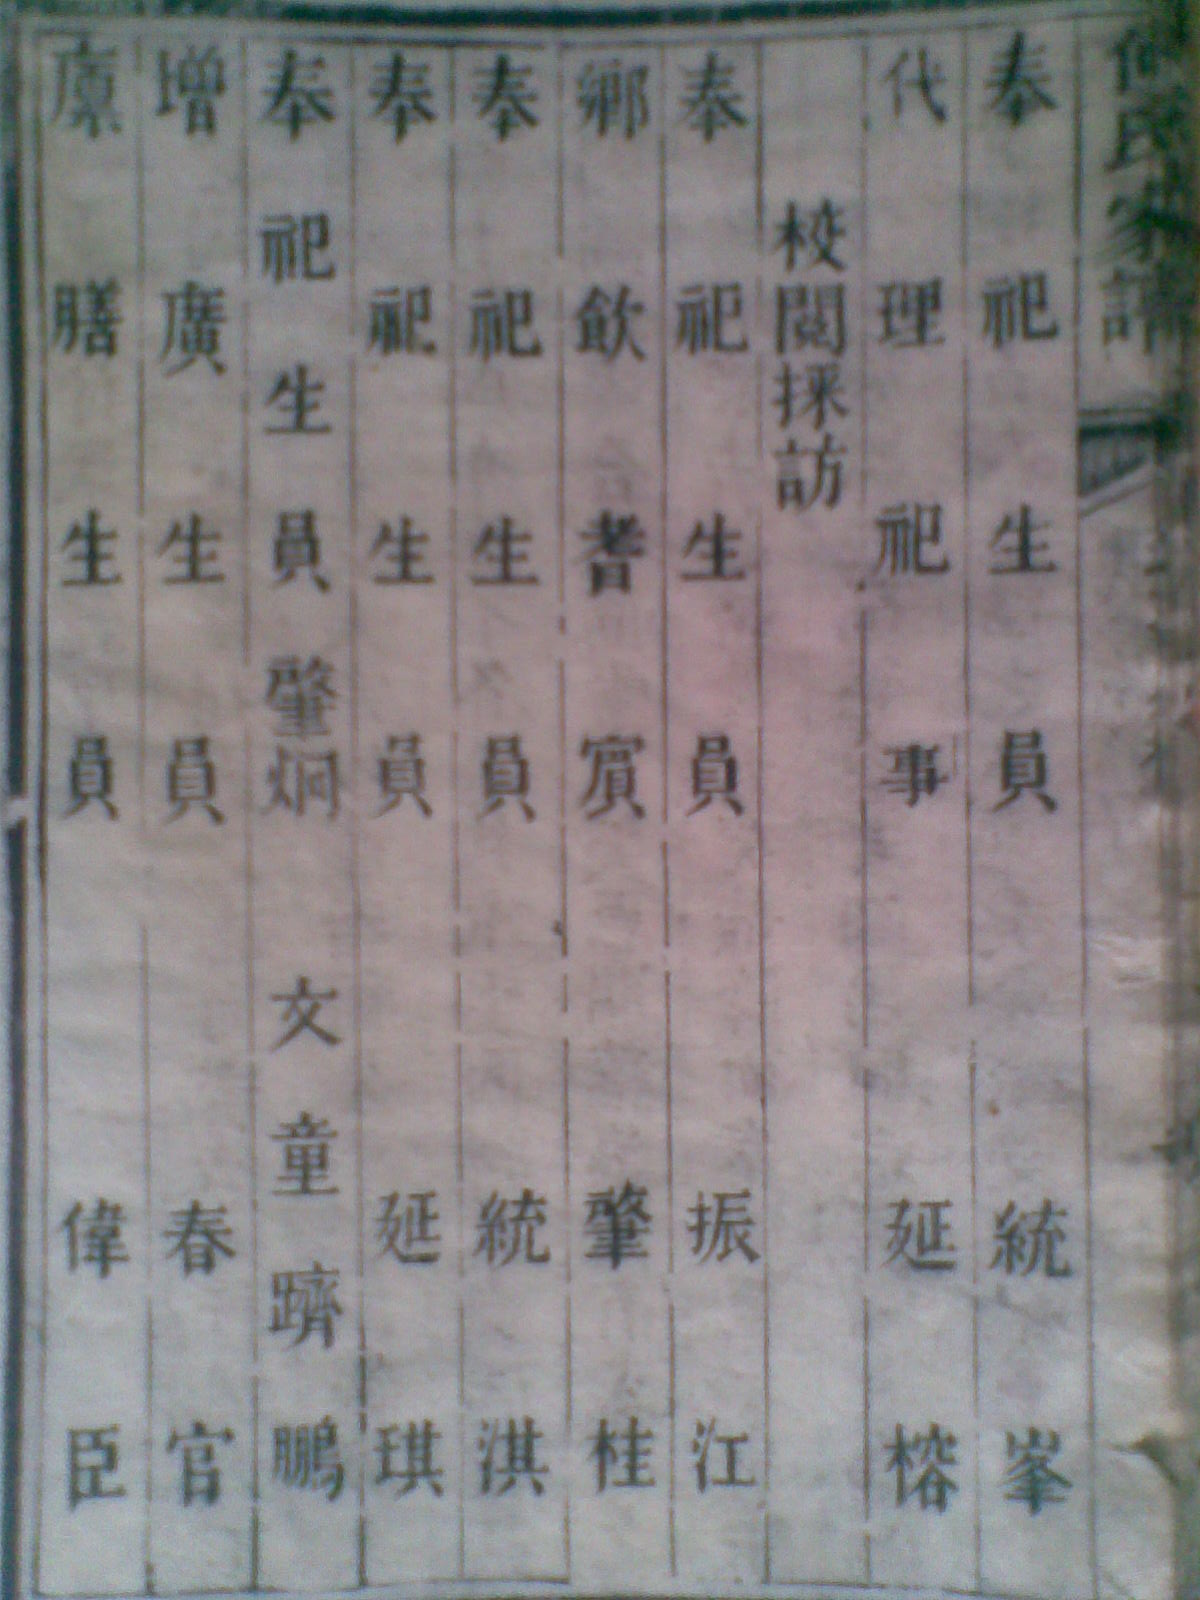 氏家譜
奉祀生員統峯
代理祀事延榕
校閱採訪
奉祀生員振江
鄉飲耆賓肇桂
奉祀生員統淇
奉祀生員延琪
奉祀生員肇炯文童躋鵬
增廣生員春官
廩膳生員偉臣